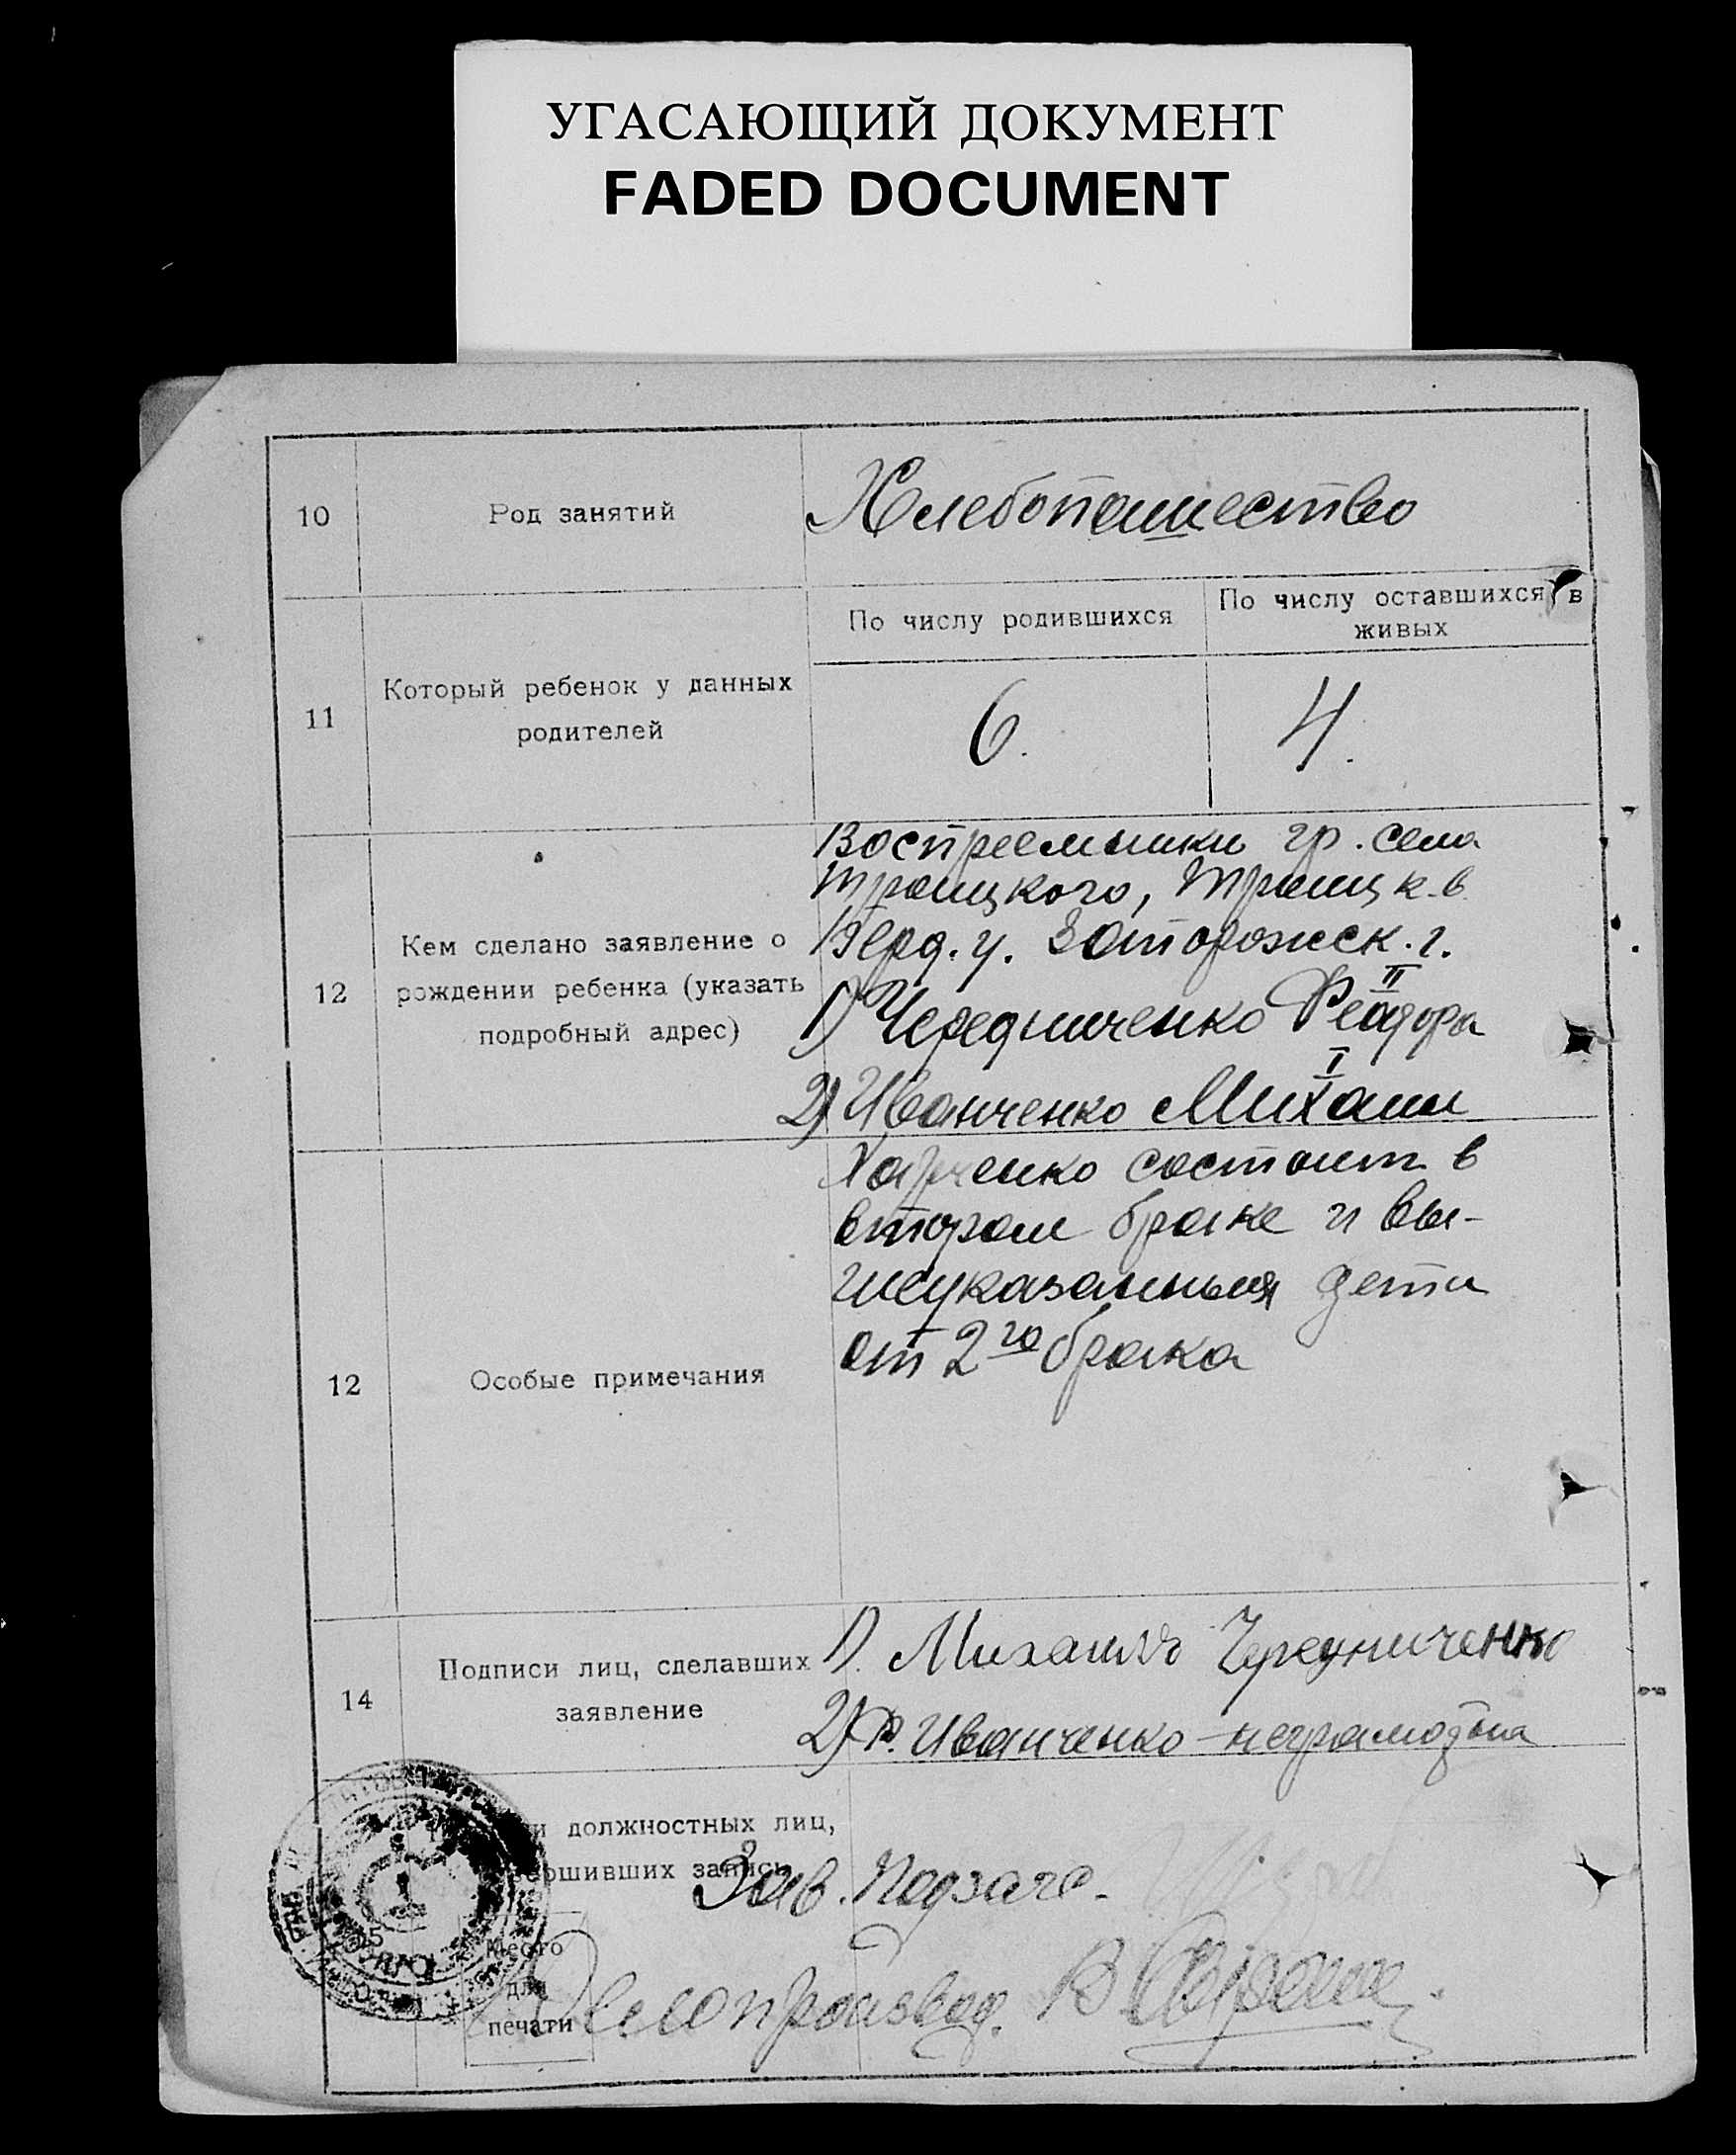 УГАСАЮЩИЙ ДОКУМЕНТ
FADED DOCUMENT
10
Род занятий
Хлебопашество
11
Который ребенок у данных
родителей
По числу родившихся
По числу оставшихся в
живых
6.
4.
12
Кем сделано заявление о
рождении ребенка (указать
подробный адрес)
Восприемники гр. села
Троицкого, Троицк. в.
Берд. у. Запорожск. г.
1) Чередниченко Феодора II
2) Иванченко Михаил I
12
Особые примечания
Харченко состоит в
втором браке и вы-
шеуказанныя дети
от 2го брака
14
Подписи лиц, сделавших
заявление
1). Михаилъ Чередниченко
2) Ф. Иванченко - неграмотна
должностных лиц,
запись
Зав. Подзагс.
Место
для
печати
Делопроизвод. В